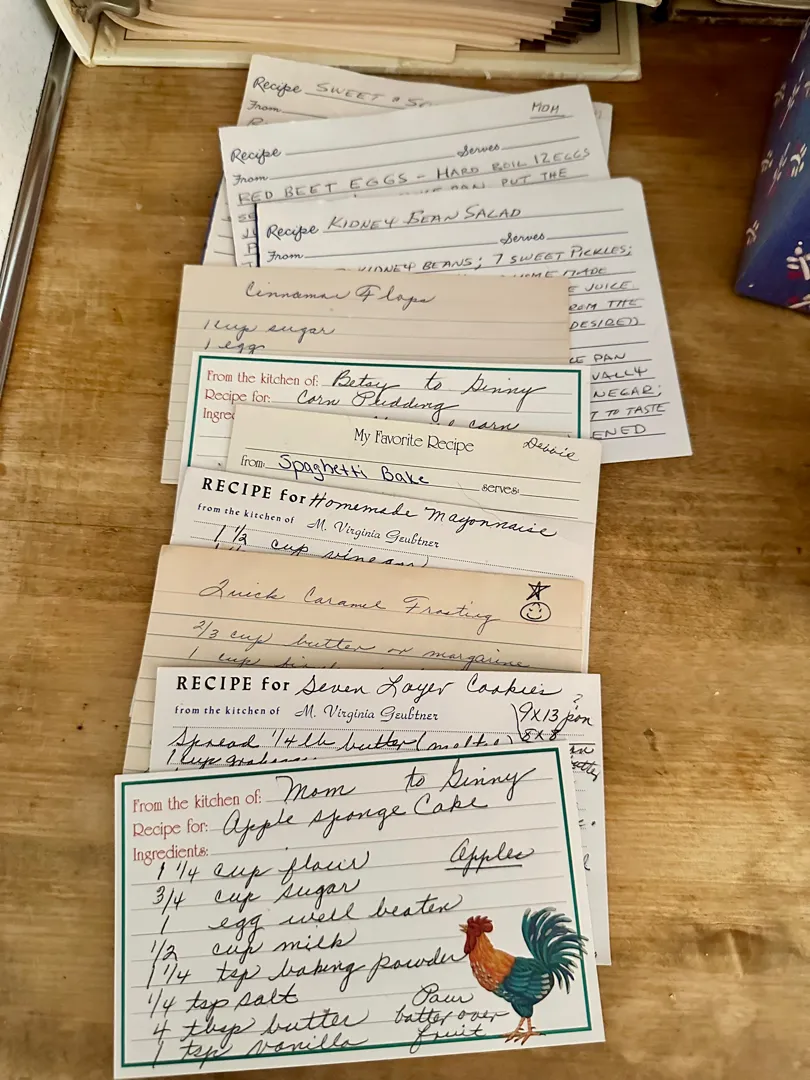 Recipe SWEET &
From
MOM
Recipe
Serves
From
RED BEET EGGS - HARD BOIL 12 EGGS
PAN, PUT THE
Recipe KIDNEY BEAN SALAD
Serves
From
KIDNEY BEANS; 7 SWEET PICKLES;
HOME MADE
E JUICE
FROM THE
DESIRED)
LE PAN
VALLY
NEGAR;
T TO TASTE
ENED
Cinnamon Flops
1 cup sugar
1 egg
From the kitchen of: Betsy to Ginny
Recipe for: Corn Pudding
Ingre
corn
My Favorite Recipe
Debbie
from: Spaghetti Bake serves:
RECIPE for Homemade Mayonnaise
from the kitchen of M. Virginia Geubtner
1 1/2 cup vinegar
Quick Caramel Frosting
2/3 cup butter or margarine
1 cup
RECIPE for Seven Layer Cookies ?
from the kitchen of M. Virginia Geubtner
9X13 pan
8X8
Spread 1/4 lb butter (melted)
1 cup graham
From the kitchen of: Mom to Ginny
Recipe for: Apple sponge Cake
Ingredients:
1 1/4 cup flour
Apples
3/4 cup sugar
1 egg well beaten
1/2 cup milk
1 1/4 tsp baking powder
1/4 tsp salt
4 tbsp butter
1 tsp vanilla
Pour
batter over
fruit